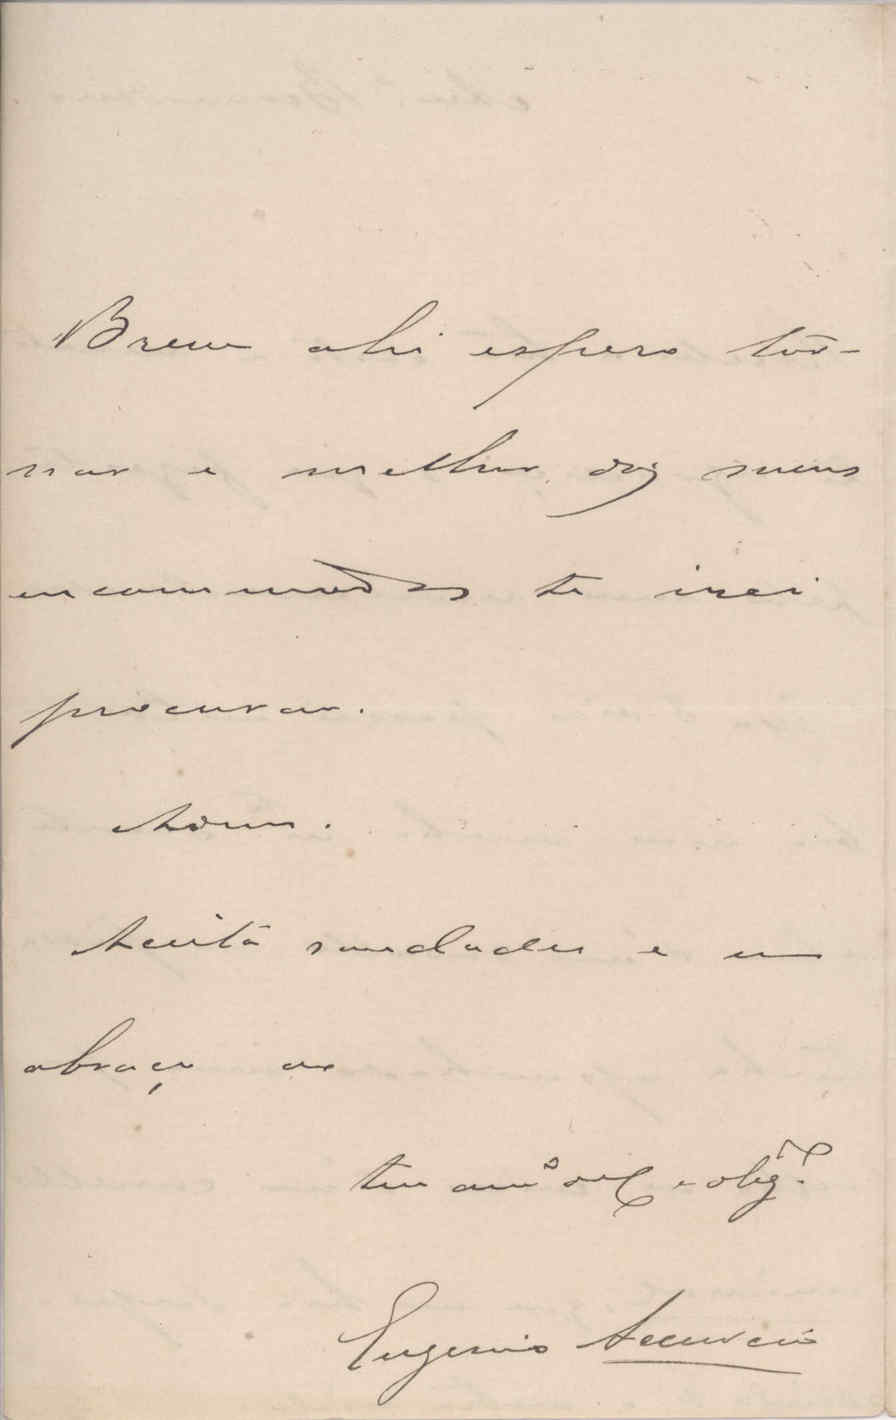 Breve ahi espero tor-
nar e melhor dos meus
encommodos te irei
procurar.
Adeus.
Aceita saudades e um
abraço do
teu amº e obgº
Eugenio